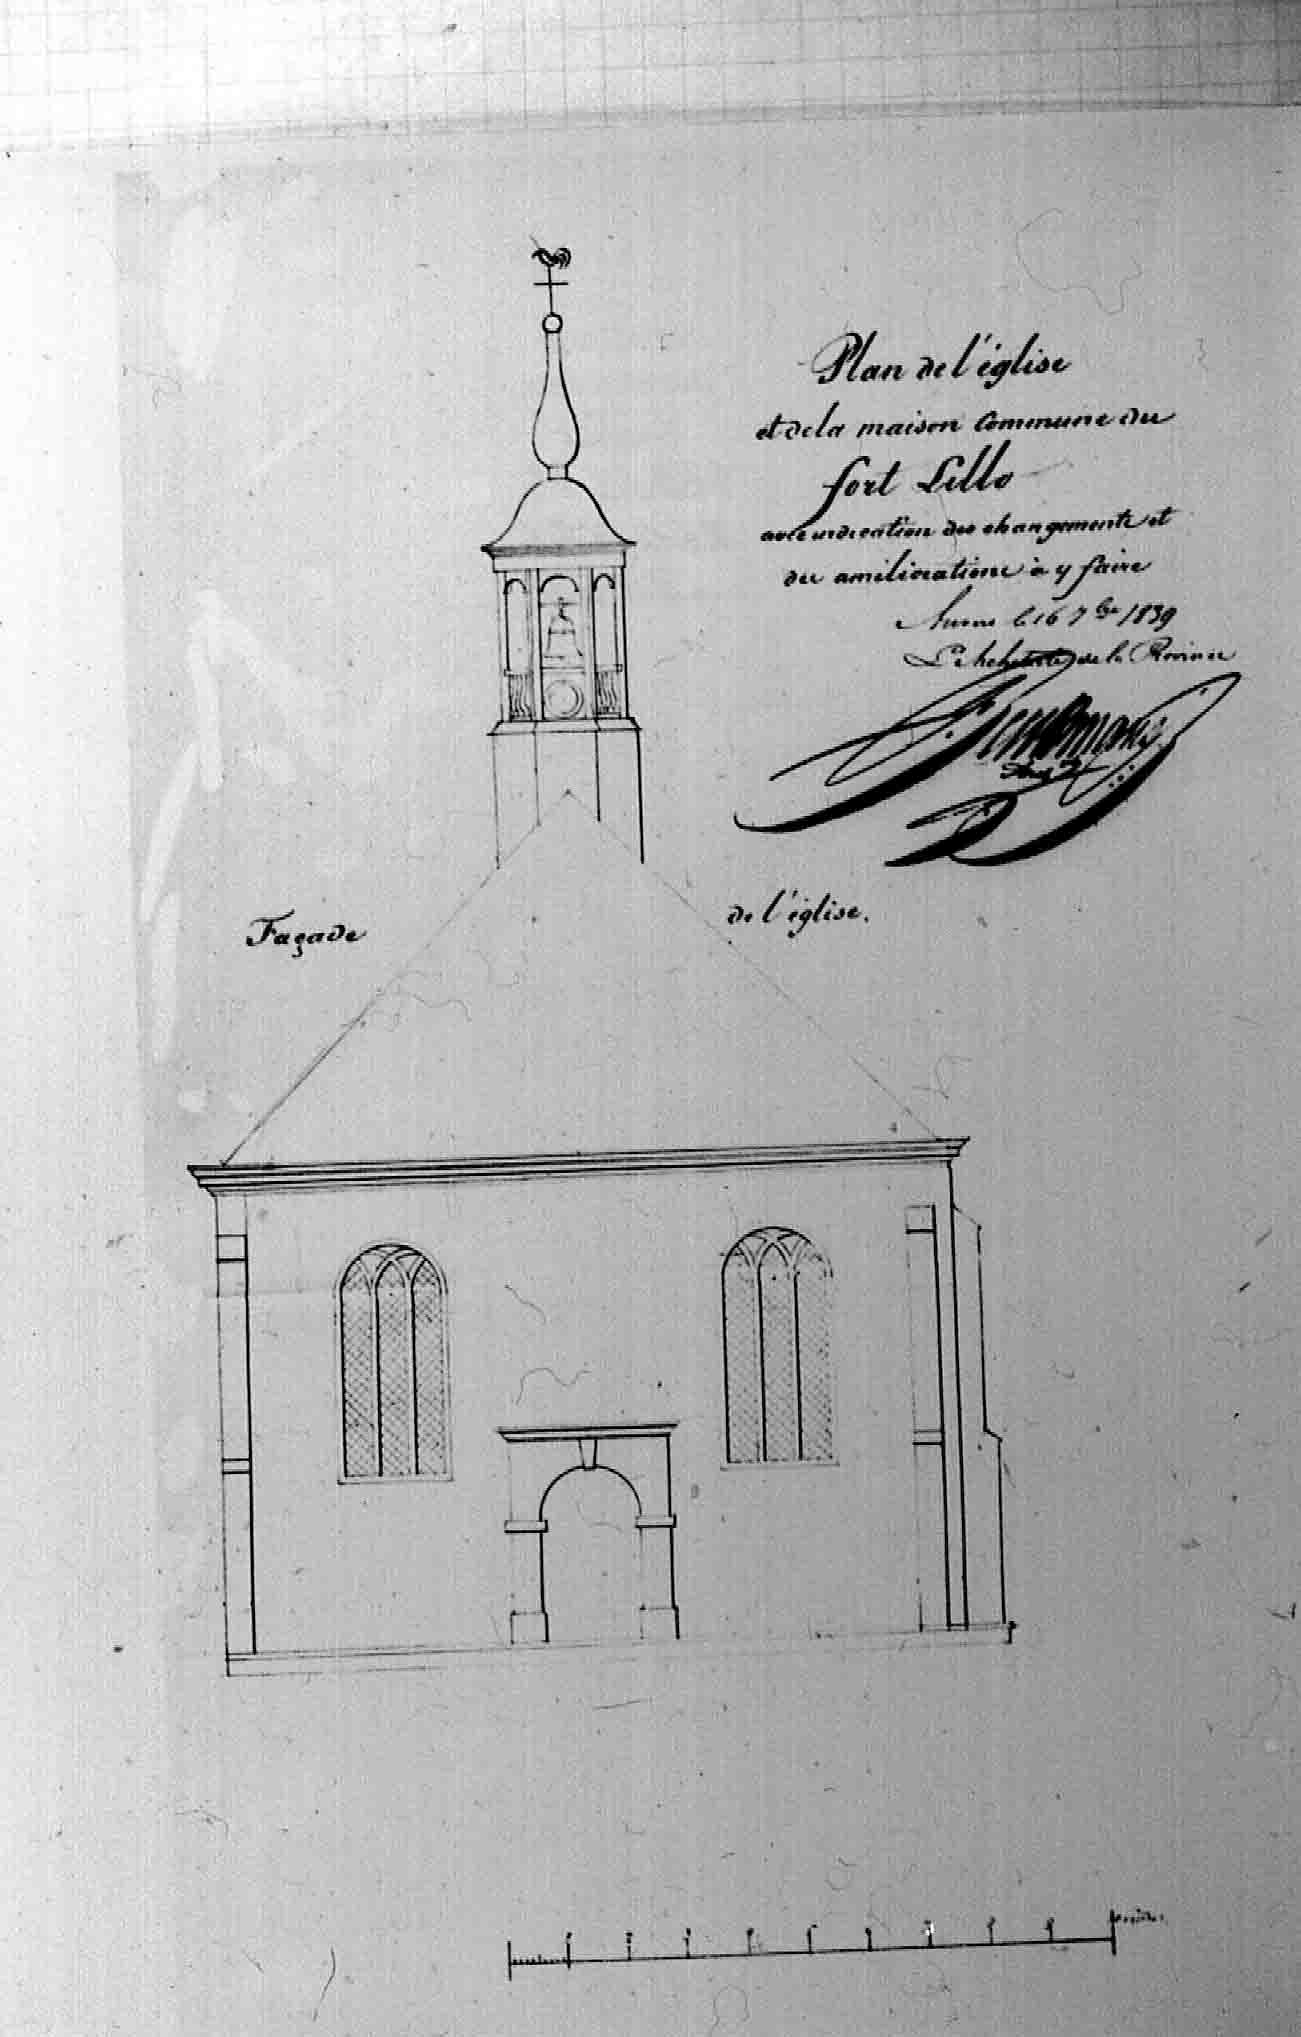 Plan de l'église
et de la maison Commune du
fort Lillo
avec indication des changements et
des améliorations à y faire
le 16 7bre 1839
L'Architecte de la Province
Façade de l'église.